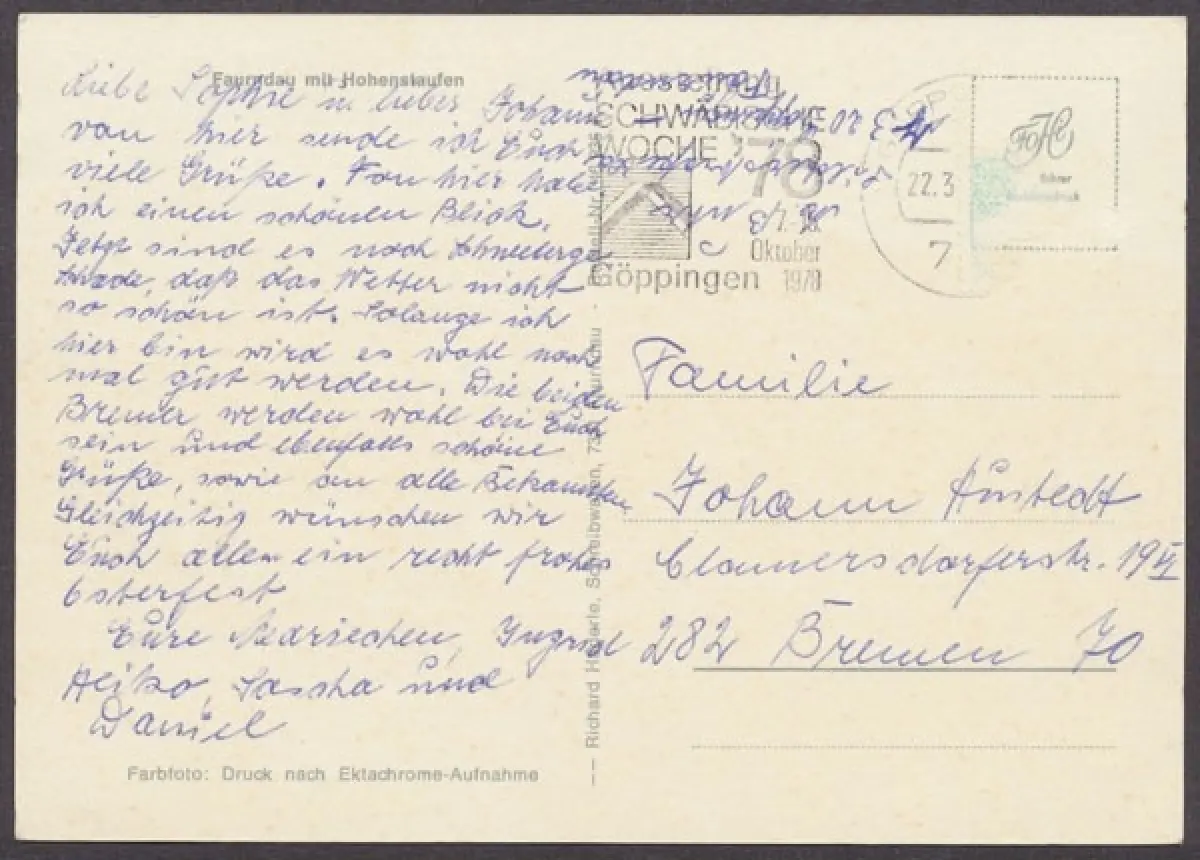 Faurndau mit Hohenstaufen
Liebe Sophie u. lieber Johann
von hier sende ich Euch
viele Grüße. Von hier habe
ich einen schönen Blick.
Jetzt sind es noch Schneeberge
Schade, daß das Wetter nicht
so schön ist. Solange ich
hier bin wird es wohl noch
mal gut werden. Die beiden
Bremer werden wohl bei Euch
sein und ebenfalls schöne
Grüße, sowie an alle Bekannten
Gleichzeitig wünschen wir
Euch allen ein recht frohes
Osterfest
Eure Ingrid
Heiko, Sascha und
Daniel
Farbfoto: Druck nach Ektachrome-Aufnahme
Richard Schreibwaren, Faurndau
SCHWÄBISCHE
WOCHE '78
Oktober
Göppingen 1978
22.3
7
FOH
Familie
Johann
19
282 Bremen 70